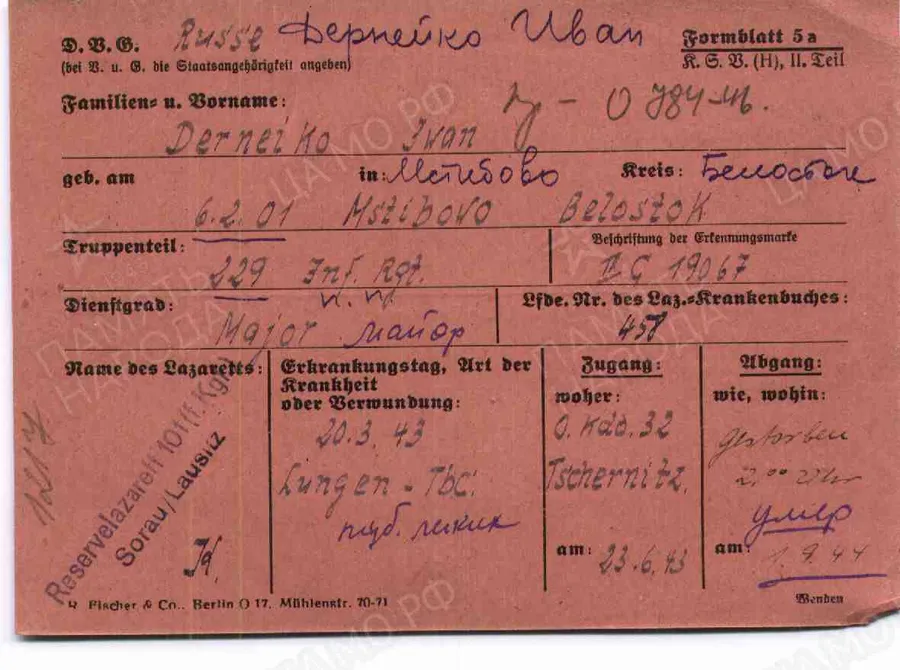 D.V.G. Russe Дернейко Иван Formblatt 5a
(bei V. u. G. die Staatsangehörigkeit angeben) K. S. V. (H), II. Teil
Familien- u. Vorname:
Derneiko Iwan
geb. am in: Мстибово Kreis: Белосток
6.2.01 Mstibovo Belostok
Truppenteil: Beschriftung der Erkennungsmarke
229 Inf. Rgt. II G 19067
Dienstgrad: Lfde. Nr. des Laz.-Krankenbuches:
Major майор 458
Name des Lazaretts: Erkrankungstag, Art der Krankheit oder Verwundung: Zugang: Abgang:
woher: wie, wohin:
20.3.43 O. Kdo. 32 gestorben
Lungen-Tbc. Tschernitz 2.00 Uhr
туб. легких умер
am: 23.6.43 am: 1.9.44
Reservelazarett 101 f. Kgf.
Sorau/Lausitz
1217
R. Fischer & Co., Berlin O 17, Mühlenstr. 70-71 Wenden
ПАМЯТЬ НАРОДА
ЦАМО.РФ